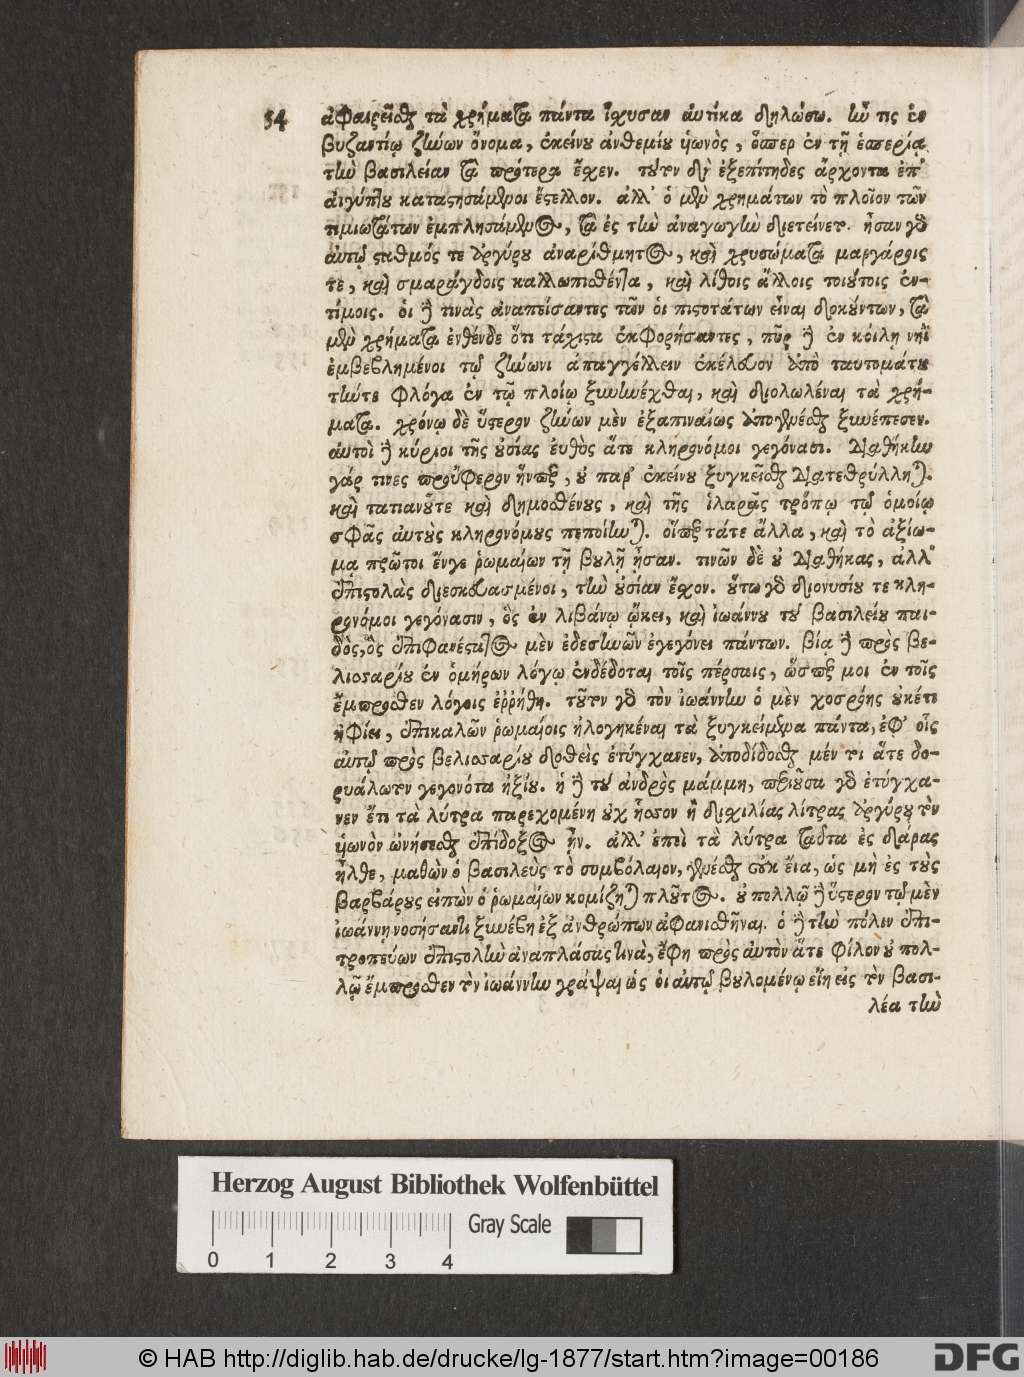 54 ἀφαιρεῖσθαι τὰ χρήματα πάντα ἴσχυσαν αὐτίκα δηλώσω. ἦν τις ἐν
βυζαντίῳ ζήνων ὄνομα, ἐκείνου ἀνθεμίου υἱωνὸς, ὅσπερ ἐν τῇ ἑσπερίᾳ
τὴν βασιλείαν τὰ πρότερα ἔσχεν. τοῦτον δὴ ἐξεπίτηδες ἄρχοντα ἐπ'
αἰγύπτου καταστησάμενοι ἔστελλον. ἀλλ' ὁ μὲν χρημάτων τὸ πλοῖον τῶν
τιμιωτάτων ἐμπλησάμενος, τὰ ἐς τὴν ἀναγωγὴν διετείνετο. ἦσαν γὰρ
αὐτῷ σταθμός τε ἀργύρου ἀναρίθμητος, καὶ χρυσώματα μαργάροις
τε, καὶ σμαράγδοις καλλωπισθέντα, καὶ λίθοις ἄλλοις τοιούτοις ἐν-
τίμοις. οἱ δὲ τινὰς ἀναπείσαντες τῶν οἱ πιστοτάτων εἶναι δοκούντων, τὰ
μὲν χρήματα ἐνθένδε ὅτι τάχιστα ἐκφορήσαντες, πῦρ δὲ ἐν κοίλῃ νηῒ
ἐμβεβλημένοι τῷ ζήνωνι ἀπαγγέλλειν ἐκέλευον ἀπὸ ταυτομάτου
τήντε φλόγα ἐν τῷ πλοίῳ ξυνηνέχθαι, καὶ διολωλέναι τὰ χρή-
ματα. χρόνῳ δὲ ὕστερον ζήνων μὲν ἐξαπιναίως ἀπογενέσθαι ξυνέπεσεν.
αὐτοὶ δὲ κύριοι τῆς οὐσίας εὐθὺς ἅτε κληρονόμοι γεγόνασι. διαθήκην
γάρ τινες προὔφερον ἥνπερ, οὐ παρ' ἐκείνου ξυγκεῖσθαι διατεθρύλληται.
καὶ τατιανοῦτε καὶ δημοσθένους, καὶ τῆς ἱλαρᾶς τρόπῳ τῷ ὁμοίῳ
σφᾶς αὐτοὺς κληρονόμους πεποίηνται. οἵπερ τάτε ἄλλα, καὶ τὸ ἀξίω-
μα πρῶτοι ἔνγε ῥωμαίων τῇ βουλῇ ἦσαν. τινῶν δὲ οὐ διαθήκας, ἀλλ'
ἐπιστολὰς διεσκευασμένοι, τὴν οὐσίαν ἔσχον. οὕτω γὰρ διονυσίου τε κλη-
ρονόμοι γεγόνασιν, ὃς ἐν λιβάνῳ ᾤκει, καὶ ἰωάννου τοῦ βασιλείου παι-
δὸς, ὃς ἐπιφανέστατος μὲν ἐδεσηνῶν ἐγεγόνει πάντων. βίᾳ δὲ πρὸς βε-
λισαρίου ἐν ὁμήρων λόγῳ ἐνδέδοται τοῖς πέρσαις, ὥσπερ μοι ἐν τοῖς
ἔμπροσθεν λόγοις ἐῤῥήθη. τοῦτον γὰρ τὸν ἰωάννην ὁ μὲν χοσρόης οὐκέτι
ἠφίει, ἐπικαλῶν ῥωμαίοις ἠλογηκέναι τὰ ξυγκείμενα πάντα, ἐφ' οἷς
αὐτῷ πρὸς βελισαρίου δοθεὶς ἐτύγχανεν, ἀποδίδοσθαι μέν τοι ἅτε δο-
ρυάλωτον γεγονότα ἠξίου. ἡ δὲ τοῦ ἀνδρὸς μάμμη, περιοῦσα γὰρ ἐτύγχα-
νεν ἔτι τὰ λύτρα παρεχομένη οὐχ ἧσσον ἢ δισχιλίας λίτρας ἀργύρου τὸν
υἱωνὸν ὠνήσεσθαι ἐπίδοξος ἦν. ἀλλ' ἐπεὶ τὰ λύτρα ταῦτα ἐς δάρας
ἦλθε, μαθὼν ὁ βασιλεὺς τὸ συμβόλαιον, γενέσθαι οὐκ εἴα, ὡς μὴ ἐς τοὺς
βαρβάρους εἰπὼν ὁ ῥωμαίων κομίζηται πλοῦτος. οὐ πολλῷ δὲ ὕστερον τῷ μὲν
ἰωάννῃ νοσήσαντι ξυνέβη ἐξ ἀνθρώπων ἀφανισθῆναι. ὁ δὲ τὴν πόλιν ἐπι-
τροπεύων ἐπιστολὴν ἀναπλάσας τινὰ, ἔφη πρὸς αὐτὸν ἅτε φίλον οὐ πολ-
λῷ ἔμπροσθεν τὸν ἰωάννην γράψαι ὡς οἱ αὐτῷ βουλομένῳ εἴη εἰς τὸν βασι-
λέα τὴν
Herzog August Bibliothek Wolfenbüttel
Gray Scale
0 1 2 3 4
© HAB http://diglib.hab.de/drucke/lg-1877/start.htm?image=00186 DFG